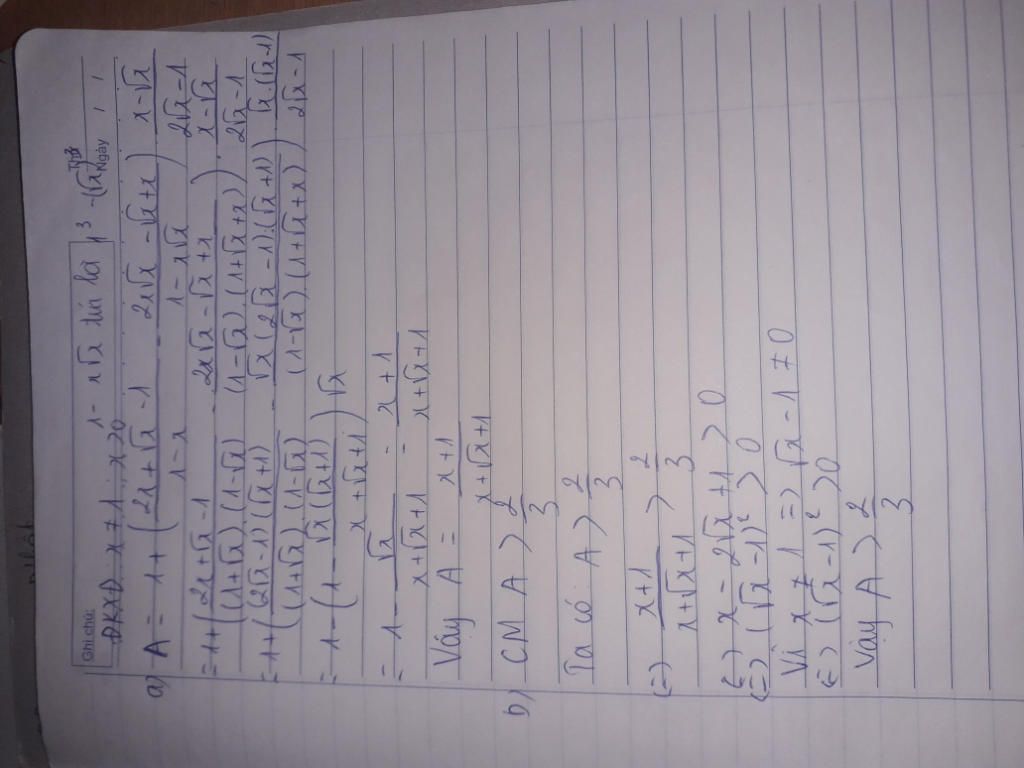 Ghi chú: 1 - x√x tức là 1³ - (√x)³
Thứ
Ngày / /
ĐKXĐ: x ≠ 1; x > 0
a) A = 1 + ( (2x + √x - 1)/(1 - x) - (2x√x - √x + x)/(1 - x√x) ) . (x - √x)/(2√x - 1)
= 1 + ( (2x + √x - 1)/((1 + √x)(1 - √x)) - (2x√x - √x + x)/((1 - √x)(1 + √x + x)) ) . (x - √x)/(2√x - 1)
= 1 + ( ((2√x - 1)(√x + 1))/((1 + √x)(1 - √x)) - (√x(2√x - 1)(√x + 1))/((1 - √x)(1 + √x + x)) ) . (√x(√x - 1))/(2√x - 1)
= 1 - (1 - (√x(√x + 1))/(x + √x + 1)) √x
= 1 - √x/(x + √x + 1) = (x + 1)/(x + √x + 1)
Vậy A = (x + 1)/(x + √x + 1)
b) CM A > 2/3
Ta có A > 2/3
<=> (x + 1)/(x + √x + 1) > 2/3
<=> x - 2√x + 1 > 0
<=> (√x - 1)² > 0
Vì x ≠ 1 => √x - 1 ≠ 0
<=> (√x - 1)² > 0
Vậy A > 2/3